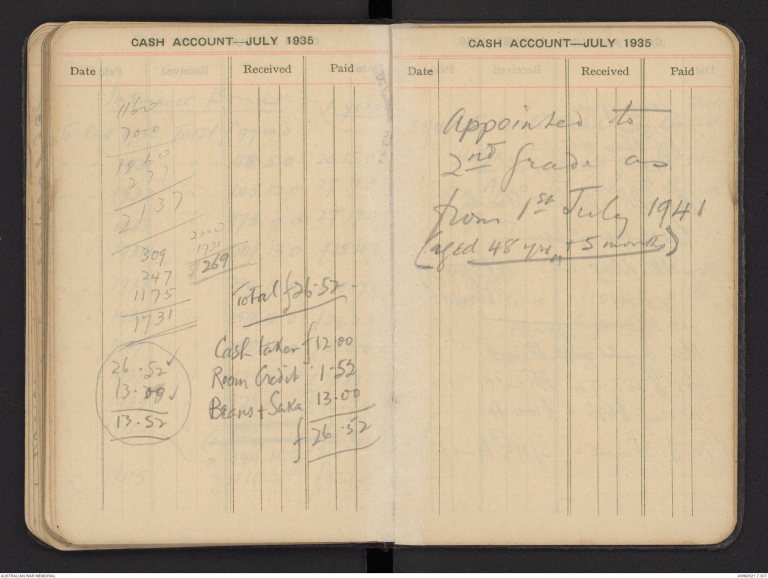 CASH ACCOUNT—JULY 1935
Date Received Paid
1160
709
2137
309
247
1175
1731
2000
1731
269
Total £26·52
Cash taken £12·00
Room Credit 1·52
Beans + Saka 13·00
£26·52
26·52 ✓
13·00 ✓
13·52
CASH ACCOUNT—JULY 1935
Date Received Paid
Appointed to
2nd grade as
from 1st July 1941
(aged 48 yrs + 5 months)
AUSTRALIAN WAR MEMORIAL